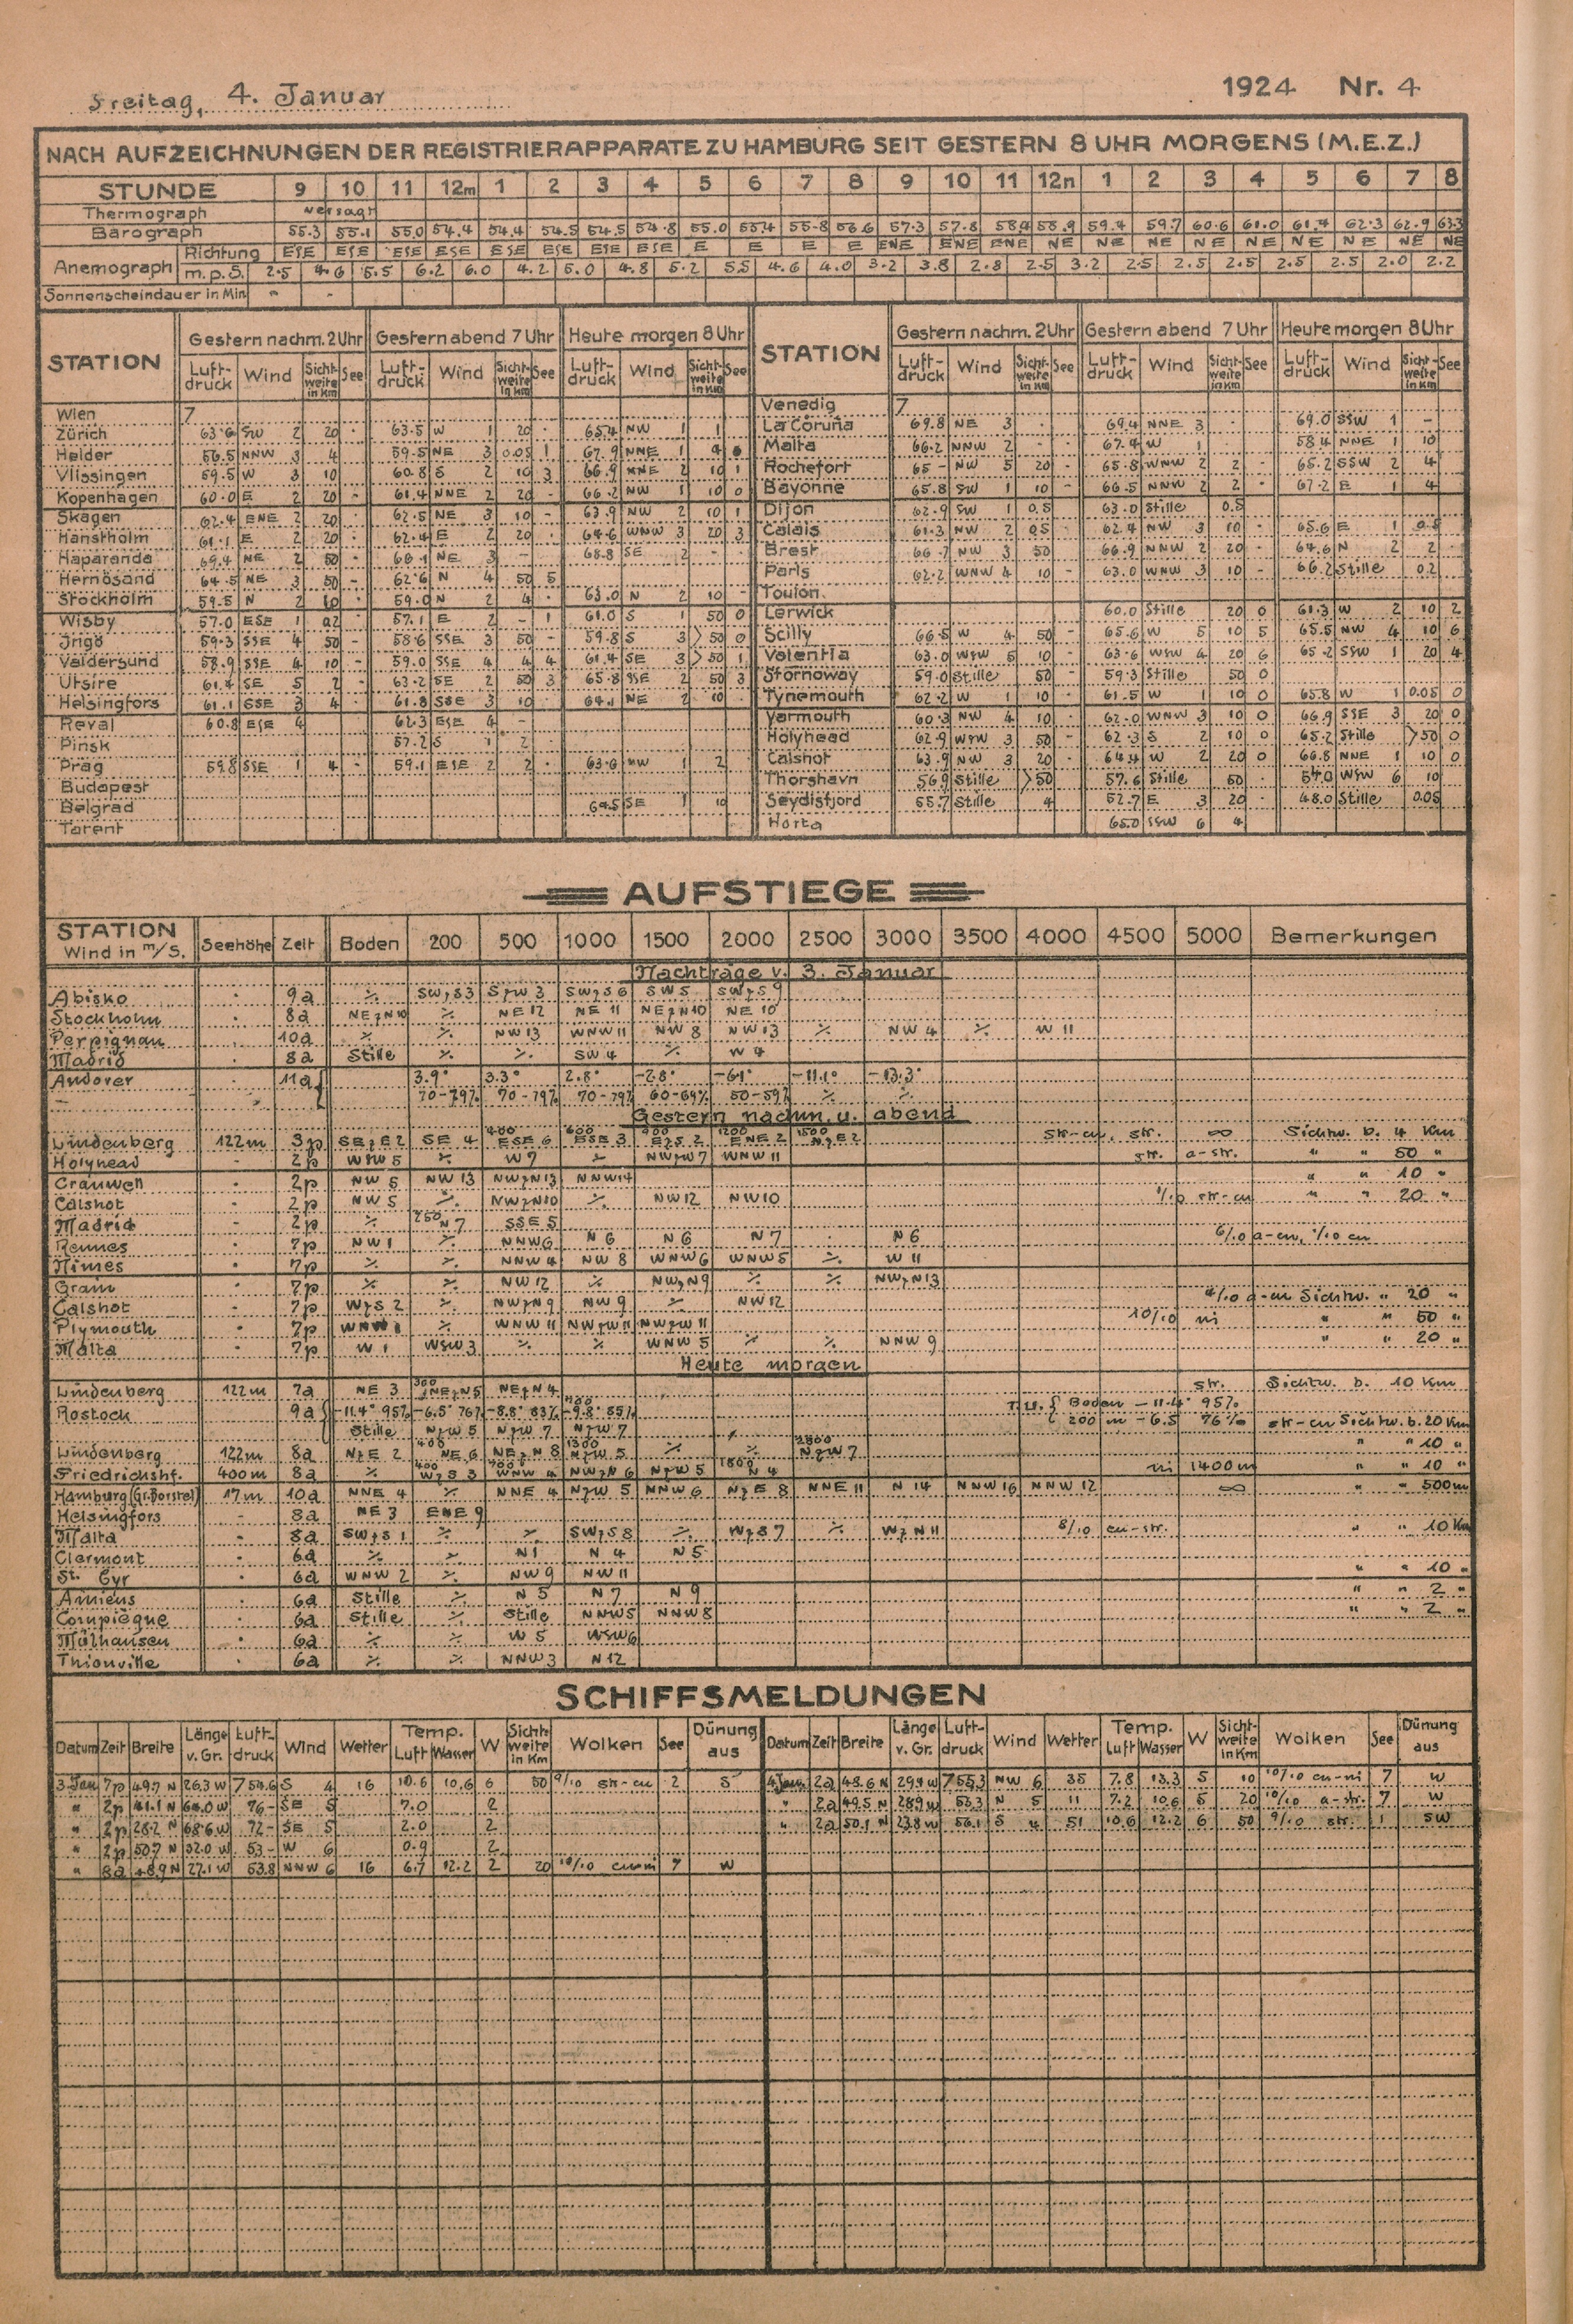 Freitag, 4. Januar 1924 Nr. 4
NACH AUFZEICHNUNGEN DER REGISTRIERAPPARATE ZU HAMBURG SEIT GESTERN 8 UHR MORGENS (M.E.Z.)
STUNDE 9 10 11 12m 1 2 3 4 5 6 7 8 9 10 11 12n 1 2 3 4 5 6 7 8
Thermograph versagt
Barograph 55.3 55.1 55.0 54.4 54.4 54.5 54.5 54.8 55.0 55.4 55.8 56.6 57.3 57.8 58.4 58.9 59.4 59.7 60.6 61.0 61.4 62.3 62.9 63.3
Anemograph Richtung ESE ESE ESE ESE ESE ESE ESE ESE E E E E ENE ENE ENE NE NE NE NE NE NE NE NE NE
m.p.S. 2.5 4.6 5.5 6.2 6.0 4.2 5.0 4.8 5.2 5.5 4.6 4.0 3.2 3.8 2.8 2.5 3.2 2.5 2.5 2.5 2.5 2.5 2.0 2.2
Sonnenscheindauer in Min - -
STATION Gestern nachm. 2 Uhr Gestern abend 7 Uhr Heute morgen 8 Uhr STATION Gestern nachm. 2 Uhr Gestern abend 7 Uhr Heute morgen 8 Uhr
Luftdruck Wind Sichtweite in Km See Luftdruck Wind Sichtweite in Km See Luftdruck Wind Sichtweite in Km See Luftdruck Wind Sichtweite in Km See Luftdruck Wind Sichtweite in Km See Luftdruck Wind Sichtweite in Km See
Wien 7 Venedig 7
Zürich 63.6 SW 2 20 · 63.5 W 1 20 · 65.4 NW 1 1 La Coruña 69.8 NE 3 · 69.4 NNE 3 · 69.0 SSW 1 -
Helder 56.5 NNW 3 4 59.5 NE 3 0.05 1 67.9 NNE 1 4 Malta 66.2 NNW 2 - 67.4 W 1 58.4 NNE 1 10
Vlissingen 59.5 W 3 10 60.8 S 2 10 3 66.9 NNE 2 10 1 Rochefort 65- NW 5 20 - 65.8 WNW 2 2 - 65.2 SSW 2 4
Kopenhagen 60.0 E 2 20 - 61.4 NNE 2 20 - 66.2 NW 1 10 0 Bayonne 65.8 SW 1 10 - 66.5 NNW 2 2 · 67.2 E 1 4
Skagen 62.4 ENE 2 20 62.5 NE 3 10 - 63.9 NW 2 10 1 Dijon 62.9 SW 1 0.5 63.0 Stille 0.5
Hanstholm 61.1 E 2 20 · 62.4 E 2 20 · 64.6 WNW 3 20 3 Calais 61.3 NW 2 0.5 62.4 NW 3 10 - 65.6 E 1 0.5
Haparanda 69.4 NE 2 50 - 68.1 NE 3 - 68.8 SE 2 - Brest 66.7 NW 3 50 66.9 NNW 2 20 - 64.6 N 2 2 -
Hernösand 64.5 NE 3 50 - 62.6 N 4 50 5 Paris 62.2 WNW 4 10 - 63.0 WNW 3 10 - 66.2 Stille 0.2
Stockholm 59.5 N 2 10 · 59.0 N 2 4 · 63.0 N 2 10 - Toulon
Wisby 57.0 ESE 1 57.1 E 2 - 1 61.0 S 1 50 0 Lerwick 60.0 Stille 20 0 61.3 W 2 10 2
Ingö 59.3 SSE 4 50 - 58.6 SSE 3 50 - 59.8 S 3 >50 0 Scilly 66.5 W 4 50 - 65.6 W 5 10 5 65.5 NW 4 10 6
Valdersund 58.9 SSE 4 10 - 59.0 SSE 4 4 4 61.4 SE 3 >50 1 Valentia 63.0 WSW 5 10 - 63.6 WSW 4 20 6 65.2 SSW 1 20 4
Utsire 61.4 SE 5 2 - 63.2 SE 2 50 3 65.8 SSE 2 50 3 Stornoway 59.0 Stille 50 - 59.3 Stille 50 0
Helsingfors 61.1 SSE 3 4 · 61.8 SSE 3 10 64.1 NE 2 10 Tynemouth 62.2 W 1 10 · 61.5 W 1 10 0 65.8 W 1 0.05 0
Reval 60.8 ESE 4 62.3 ESE 4 - Yarmouth 60.3 NW 4 10 · 62.0 WNW 3 10 0 66.9 SSE 3 20 0
Pinsk 57.2 S 1 2 Holyhead 62.9 WSW 3 50 - 62.3 S 2 10 0 65.2 Stille >50 0
Prag 59.8 SSE 1 4 - 59.1 ESE 2 2 · 63.6 NW 1 2 Calshot 63.9 NW 3 20 · 64.4 W 2 20 0 66.8 NNE 1 10 0
Budapest Thorshavn 56.9 Stille >50 57.6 Stille 50 · 54.0 WSW 6 10
Belgrad 64.5 SE 1 10 Seydisfjord 55.7 Stille 4 52.7 E 3 20 · 48.0 Stille 0.05
Tarent Horta 65.0 SSW 6 4
AUFSTIEGE
STATION Wind in m/s. Seehöhe Zeit Boden 200 500 1000 1500 2000 2500 3000 3500 4000 4500 5000 Bemerkungen
Nachträge v. 3. Januar
Abisko · 9a ٪ SWzS 3 SzW 3 SWzS 6 SW 5 SWzS 9
Stockholm · 8a NEzN 10 ٪ NE 12 NE 11 NEzN 10 NE 10
Perpignan · 10a ٪ ٪ NW 13 WNW 11 NW 8 NW 13 ٪ NW 4 ٪ W 11
Madrid · 8a Stille ٪ ٪ SW 4 ٪ W 4
Andover · 11a 3.9° 3.3° 2.8° -2.8° -6.1° -11.1° -13.3°
70-79% 70-79% 70-79% 60-69% 50-59% ٪ ٪
Gestern nachm. u. abend
Lindenberg 122m 3p SEzE 2 SE 4 400 ESE 6 600 ESE 3 900 EzS 2 1200 ENE 2 1500 NzE 2 str-cu, str. ∞ Sichtw. b. 4 Km
Holyhead - 2p WSW 5 ٪ W 7 ٪ NWzW 7 WNW 11 str. a-str. " " 50 "
Cranwell · 2p NW 5 NW 13 NWzN 13 NNW 14 " " 10 "
Calshot · 2p NW 5 ٪ NWzN 10 ٪ NW 12 NW 10 1/10 str-cu " " 20 "
Madrid - 2p ٪ 250 N 7 SSE 5
Rennes · 7p NW 1 ٪ NNW 6 N 6 N 6 N 7 · N 6 6/10 a-cu, 1/10 cu
Nimes · 7p ٪ ٪ NNW 4 NW 8 WNW 6 WNW 5 ٪ W 11
Grain · 7p ٪ ٪ NW 12 ٪ NWzN 9 ٪ ٪ NWzN 13
Calshot · 7p WzS 2 ٪ NWzN 9 NW 9 ٪ NW 12 4/10 a-cu Sichtw. " 20 "
Plymouth · 7p WNW 1 ٪ WNW 11 NWzW 11 NWzW 11 10/10 ni " " 50 "
Malta · 7p W 1 WSW 3 ٪ ٪ WNW 5 ٪ ٪ NNW 9 " " 20 "
Heute morgen
Lindenberg 122m 7a NE 3 300 NEzN 5 NEzN 4 str. Sichtw. b. 10 Km
Rostock 9a -11.4° 95% -6.5° 76% -8.8° 83% 900 -9.8° 85% T.u.F. Boden -11.4° 95%
Stille NzW 5 NzW 7 NzW 7 200 m -6.5 76% str-cu Sichtw. b. 20 Km
Lindenberg 122m 8a NzE 2 400 NE 6 NEzN 8 1300 NzW 5 ٪ ٪ 2800 NzW 7 " " 10 "
Friedrichshf. 400m 8a ٪ 400 WzS 3 700 WNW 4 NWzN 6 NzW 5 1800 N 4 ni 1400m " " 10 "
Hamburg (Gr. Borstel) 17m 10a NNE 4 ٪ NNE 4 NzW 5 NNW 6 NzE 8 NNE 11 N 14 NNW 16 NNW 12 ∞ " " 500m
Helsingfors - 8a NE 3 ENE 9
Malta · 8a SWzS 1 ٪ ٪ SWzS 8 ٪ WzS 7 ٪ WzN 11 8/10 cu-str. " " 10 Km
Clermont · 6a ٪ ٪ N 1 N 4 N 5
St. Cyr · 6a WNW 2 ٪ NW 9 NW 11 " " 10 "
Amiens · 6a Stille ٪ N 5 N 7 N 9 " " 2 "
Compiègne · 6a Stille ٪ Stille NNW 5 NNW 8 " " 2 "
Mülhausen · 6a ٪ ٪ W 5 WSW 6
Thionville · 6a ٪ ٪ NNW 3 N 12
SCHIFFSMELDUNGEN
Datum Zeit Breite Länge v. Gr. Luftdruck Wind Wetter Temp. Luft Wasser W Sichtweite in Km Wolken See Dünung aus Datum Zeit Breite Länge v. Gr. Luftdruck Wind Wetter Temp. Luft Wasser W Sichtweite in Km Wolken See Dünung aus
3. Jan 7p 49.7 N 26.3 W 754.6 S 4 16 10.6 10.6 6 50 9/10 str-cu 2 S 4. Jan. 2a 48.6 N 29.4 W 755.3 NW 6 35 7.8 13.3 5 10 10/10 cu-ni 7 W
" 2p 41.1 N 64.0 W 76- SE 5 7.0 2 " 2a 49.5 N 28.9 W 53.3 N 5 11 7.2 10.6 5 20 10/10 a-str. 7 W
" 2p 28.2 N 68.6 W 72- SE 5 2.0 2 " 2a 50.1 N 23.8 W 56.1 S 4 51 10.6 12.2 6 50 9/10 str. 1 SW
" 2p 50.7 N 52.0 W 53- W 6 0.9 2
" 8a 48.9 N 27.1 W 53.8 NNW 6 16 6.7 12.2 2 20 10/10 cu-ni 7 W